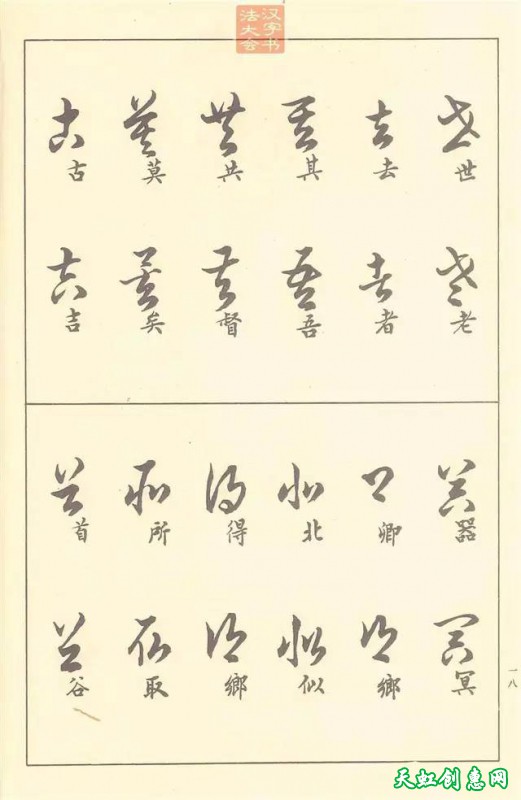 汉字书
法大会
世 老
去 者
其 吾
共 督
莫 矣
古 吉
器 冥
卿 鄉
北 似
得 鄉
所 取
首 谷
一八
天虹创惠网